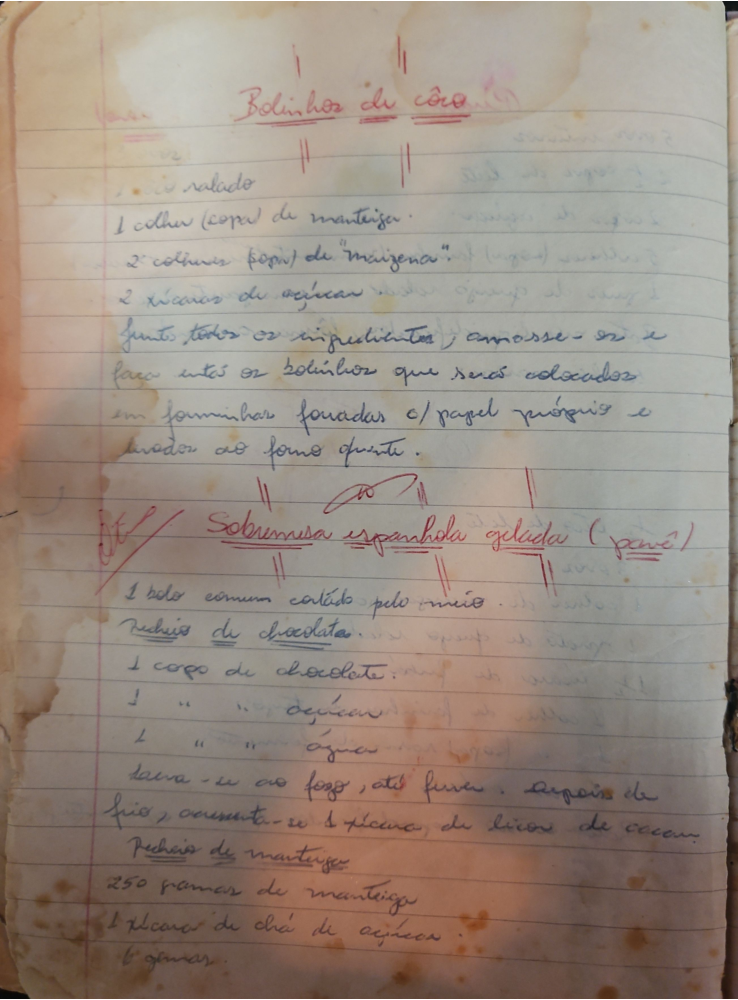 Bolinhos de côco
ralado
1 colher (sopa) de manteiga.
2 colheres (sopa) de "maizena".
2 xícaras de açúcar
Junte todos os ingredientes, amasse-os e
faça então os bolinhos que serão colocados
em forminhas forradas c/ papel próprio e
levados ao forno quente.
Sobremesa espanhola gelada (pavê)
1 bolo comum cortado pelo meio.
Recheio de chocolate.
1 copo de chocolate.
1 " " açúcar
1 " " água
Leva-se ao fogo, até ferver. Depois de
frio, acrescenta-se 1 xícara de licor de cacau
Recheio de manteiga
250 gramas de manteiga
1 xícara de chá de açúcar.
6 gemas.